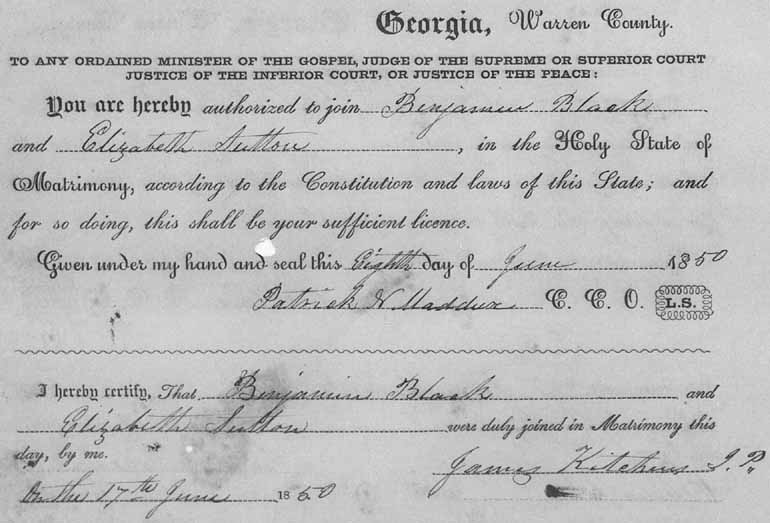 Georgia, Warren County.
TO ANY ORDAINED MINISTER OF THE GOSPEL, JUDGE OF THE SUPREME OR SUPERIOR COURT
JUSTICE OF THE INFERIOR COURT, OR JUSTICE OF THE PEACE:
You are hereby authorized to join Benjamin Black
and Elizabeth Sutton, in the Holy State of
Matrimony, according to the Constitution and laws of this State; and
for so doing, this shall be your sufficient licence.
Given under my hand and seal this Eighth day of June 1850
Patrick N Maddux C. C. O. L.S.
I hereby certify, That Benjamin Black and
Elizabeth Sutton were duly joined in Matrimony this
day, by me.
James Kitchens J. P.
On the 17th June 1850